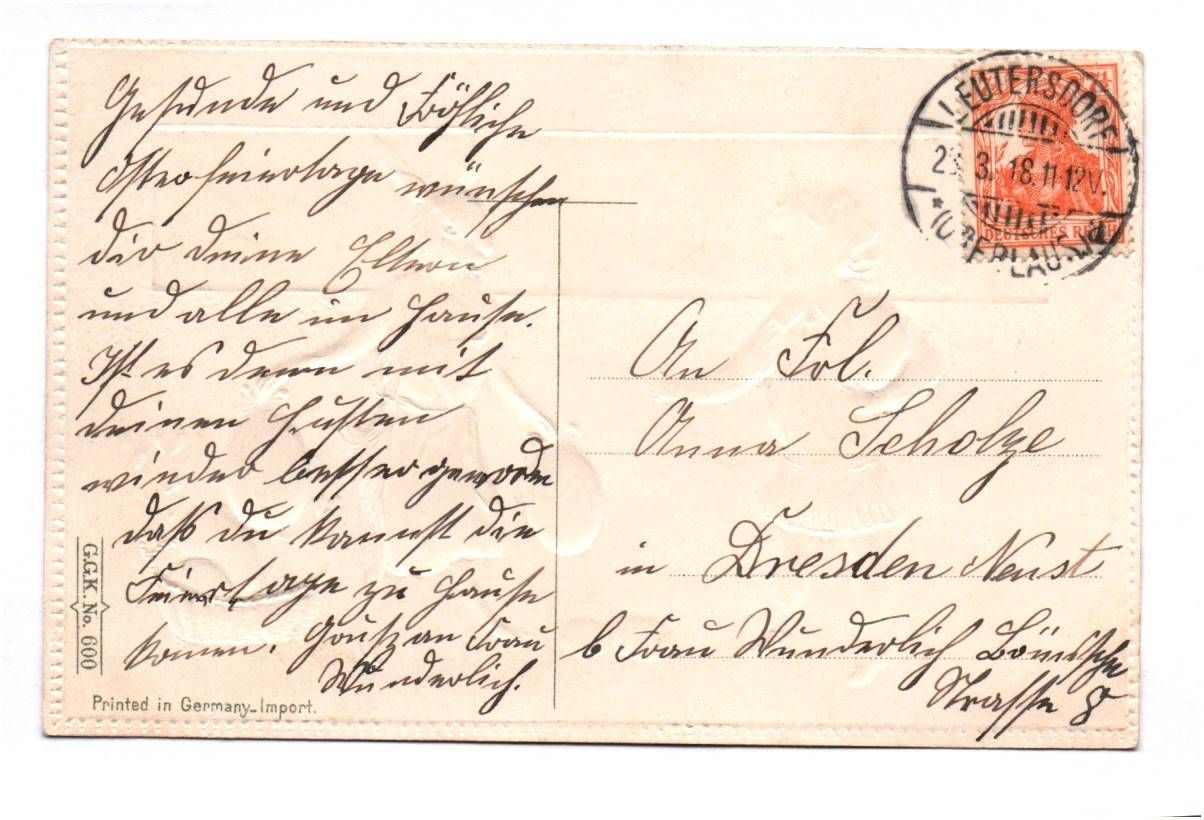 Gesunde und Fröhliche
Osterfeiertage wünschen
dir deine Eltern
und alle im Hause.
Ist es denn mit
deinen Husten
wieder besser geworden
daß du kannst die
Feiertage zu Hause
komen. Gruß an Frau
Wunderlich.
G.G.K. No. 600
Printed in Germany-Import.
LEUTERSDORF
3. 18. 11-12V.
DEUTSCHES REICH
An Frl.
Anna Scholze
in Dresden Neust
b Frau Wunderlich Bömische
Strasse 8